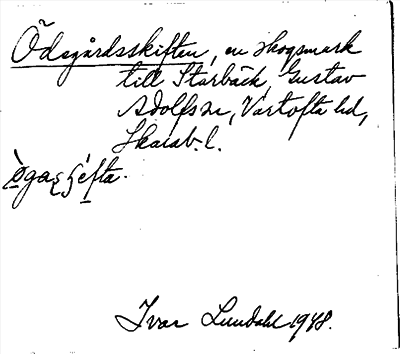 Ödegårdsskiften, en skogsmark
till Starbäck, Gustav
Adolfs sn, Vartofta hd,
Skarab. l.
Ivar Lundahl 1948.